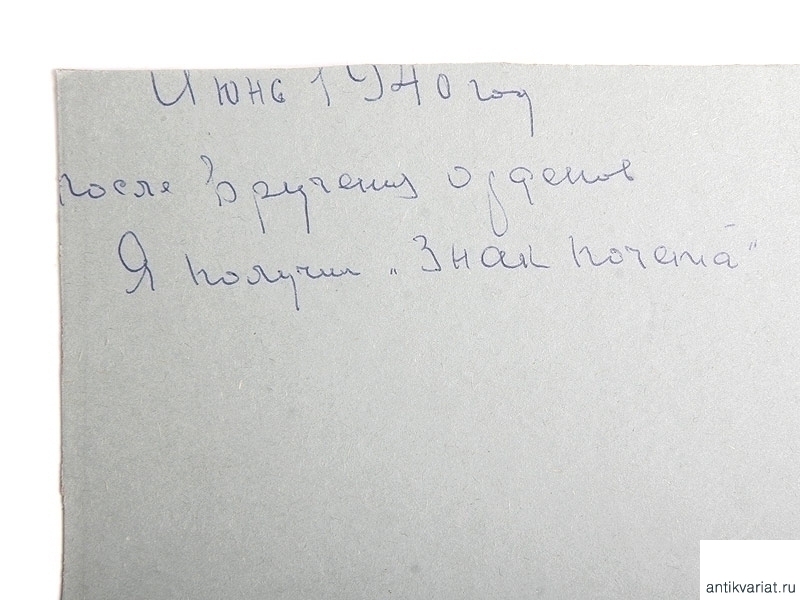 Июнь 1940 год
после вручения орденов
Я получил „Знак почета"
antikvariat.ru